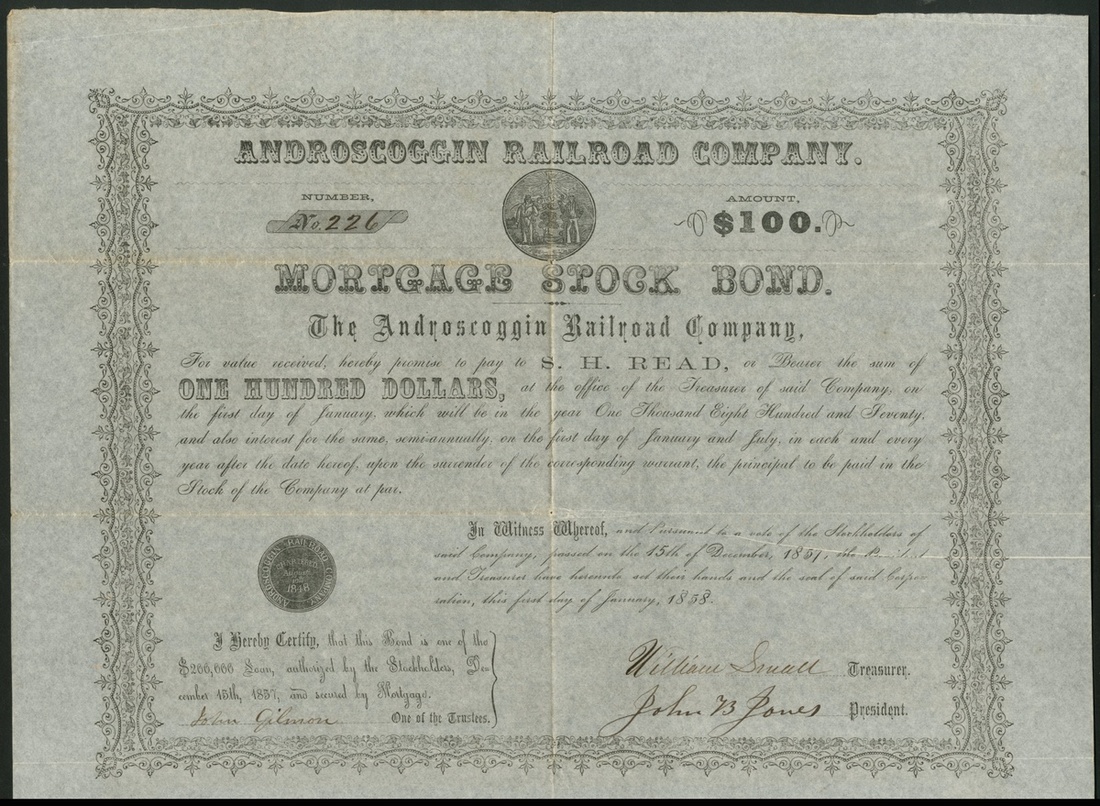 ANDROSCOGGIN RAILROAD COMPANY.
NUMBER,
No. 226
AMOUNT,
$100.
MORTGAGE STOCK BOND.
The Androscoggin Railroad Company,
For value received, hereby promise to pay to S. H. READ, or Bearer the sum of
ONE HUNDRED DOLLARS, at the office of the Treasurer of said Company, on
the first day of January, which will be in the year One Thousand Eight Hundred and Seventy,
and also interest for the same, semi-annually, on the first day of January and July, in each and every
year after the date hereof, upon the surrender of the corresponding warrant, the principal to be paid in the
Stock of the Company at par.
In Witness Whereof, and Pursuant to a vote of the Stockholders of
said Company, passed on the 15th of December, 1857, the President
and Treasurer have hereunto set their hands and the seal of said Corpo-
ration, this first day of January, 1858.
ANDROSCOGGIN RAILROAD COMPANY
CHARTERED
August
1848
I Hereby Certify, that this Bond is one of the
$266,666 Loan, authorized by the Stockholders, De-
cember 15th, 1857, and secured by Mortgage.
John Gilmon One of the Trustees.
William Small Treasurer.
John B Jones President.